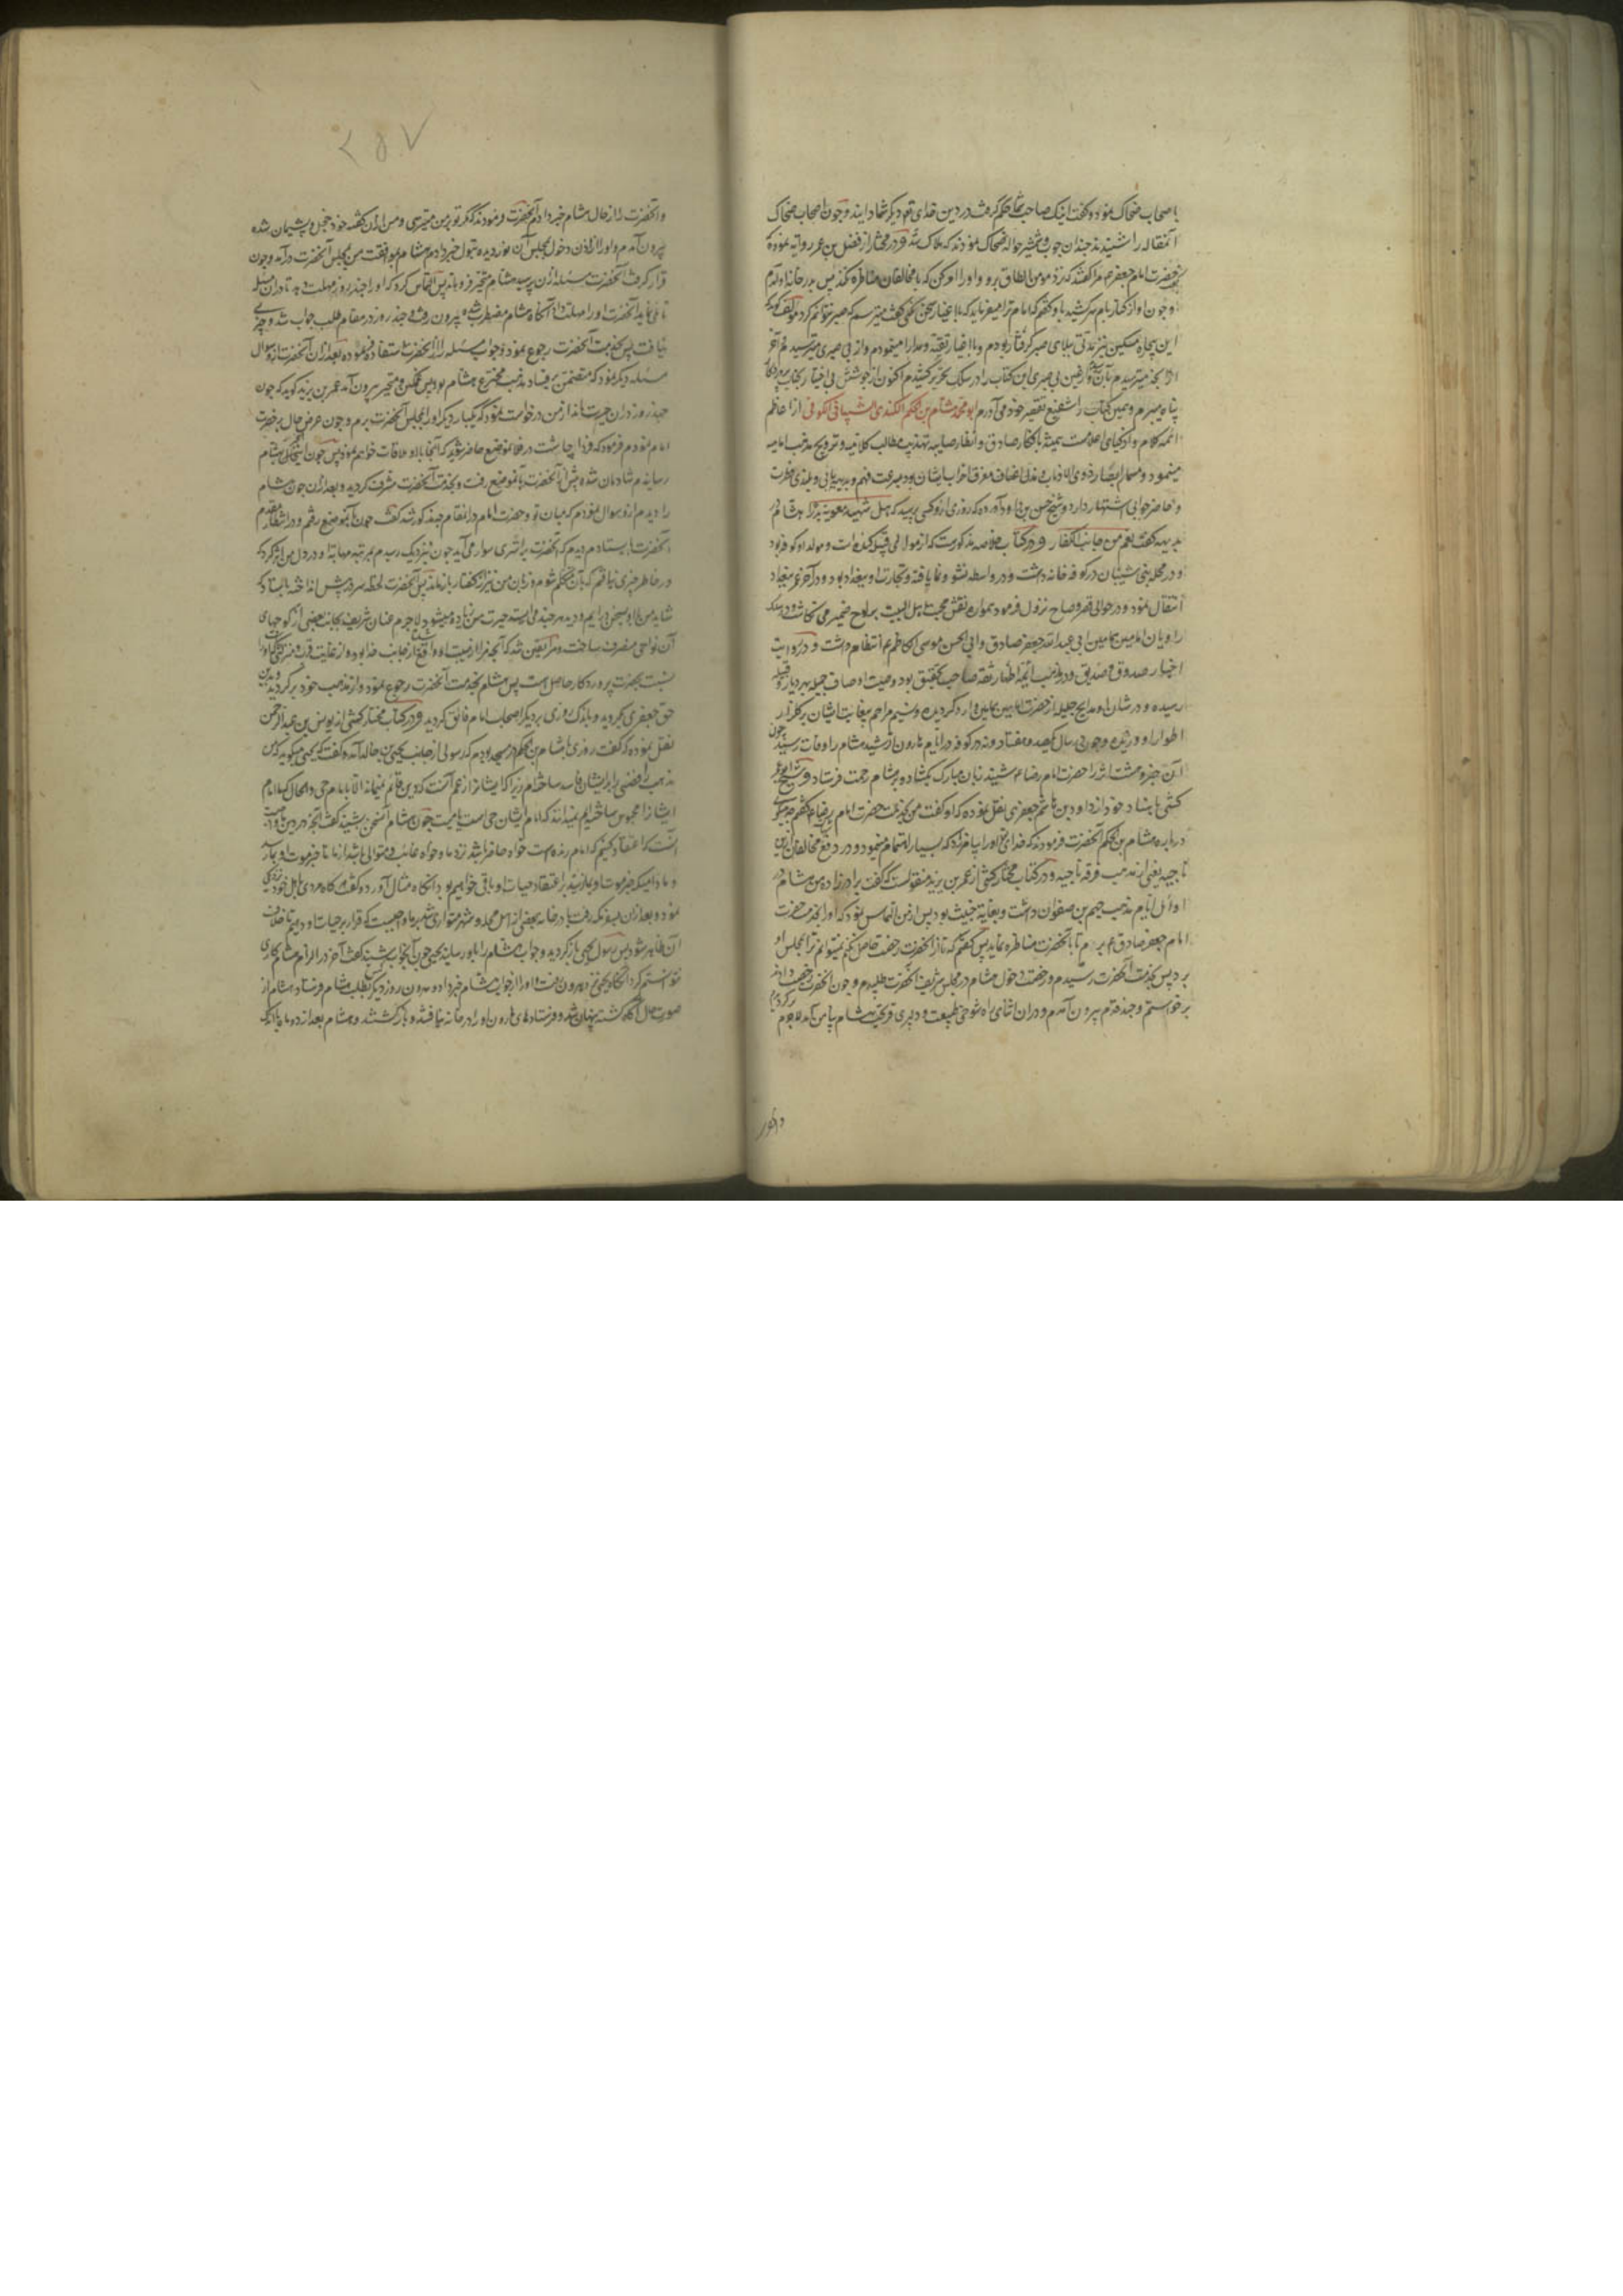 باصحاب ضحاک نمود و گفت اینک صاحب شما حکم گرفت در دین خدای تعالی دیگر شما دانید و چون اصحاب ضحاک
این مقاله را شنیدند چندان چوب و شمشیر حواله ضحاک نمودند که هلاک شد و در مختار از فضل بن عمر روایة نموده که
حضرت امام جعفر مرا گفتند که نزد مومن الطاق برو و او را امر کن که با مخالفان مناظره نکند پس بدر خانه او آمدم
و چون او از کنار بام سر کشید باو گفتم که امام ترا میفرماید که با اغیار سخن نکنی گفت میترسم که صبر نتوانم کرد مولف گوید که
این بیچاره مسکین نیز مدتی ببلای صبر گرفتار بودم و با اغیار تقیه و مدارا مینمودم و از بی صبری میترسیدم آخر
از آنچه میترسیدم بآن رسیدم و از عین بی صبری این کتاب را در سلک تحریر کشیدم اکنون از جوشش بی اختیار بجناب پروردگار
پناه میبرم و همین کتاب را شفیع تقصیر خود می آورم ابو محمد هشام بن الحکم الکندی الشیبانی الکوفی از اعاظم
ائمه کلام و ازکیای اعلامست همیشه بافکار صادق و انظار صایبه تهذیب مطالب کلامیه و ترویج مذهب امامیه
مینمود و
و حاضر جوابی اشتهار دارد و شیخ حسن بن داود آورده که روزی ازو کسی پرسید که هل شهد معویة بدرا هشام
بدیهه گفت نعم من جانب الکفار و در کتاب خلاصه مذکورست که از موالی قبیله کنده است و مولد او کوفه بود
و در محله بنی شیبان در کوفه خانه داشت و در واسط نشو و نما یافته و تجارت او ببغداد بود و در آخر عمر ببغداد
انتقال نمود و در حوالی قصر وضاح نزول فرمود همواره نقش محبت اهل البیت بر لوح ضمیر می نگاشت و در سلک
راویان امامین هامین ابی عبدالله جعفر صادق و ابی الحسن موسی الکاظم ع انتظام داشت و در روایت
اخبار صدوق و صدیق و در مذهب ائمه اطهار ثقه صاحب تحقیق بود وصیت اوصاف جمیله بهر دیار و قبیله
رسیده و در شان او مدایح جلیله از حضرت امامین هامین وارد گردیده و نسیم مراحم بیغایت ایشان بر گلزار
اطوار او وزیده و چون در سال یکصد و هفتاد و نه در کوفه در ایام هارون الرشید هشام را وفات رسید چون
آن خبر وحشت اثر را حضرت امام رضا ع شنید زبان مبارک بگشاد و بر هشام رحمت فرستاد و شیخ ابو عمرو
کشی باسناد خود از داود بن هاشم جعفری نقل نموده که او گفت من بخدمت حضرت امام رضا ع گفتم چه میگوئی
در باره هشام بن الحکم آنحضرت فرمودند که خدای تعالی او را بیامرزاد که بسیار اهتمام مینمود در دفع مخالفان این
ناحیه یعنی از مذهب فرقه ناجیه و در کتاب مختار کشی از عمر بن یزید منقولست که گفت برادر زاده من هشام در
اوائل ایام مذهب جهم بن صفوان داشت و بغایة خبیث بود پس از من التماس نمود که او را بخدمت حضرت
امام جعفر صادق ع برم تا با آنحضرت مناظره نماید پس گفتم که تا از آنحضرت رخصت حاصل نکنم نمیتوانم ترا بمجلس او
برد پس بخدمت آنحضرت رسیدم و رخصت دخول هشام در مجلس شریف آنحضرت طلبیدم و چون آنحضرت رخصت دادند
برخواستم و چند قدم بیرون آمدم و در آن اثنای راه شوخی طبیعت و دلیری هشام بیاد من آمد لاجرم برگردیدم
و آنحضرت
۲۵۷
و آنحضرت را از حال هشام خبر دادم آنحضرت فرمودند که مگر تو بر من میترسی و من از آن گفته خود خجل و پشیمان شده
بیرون آمدم و او را از اذن دخول مجلس آن نور دیده بتول خبر دادم هشام بموافقت من بمجلس آنحضرت درآمد و چون
قرار گرفت آنحضرت مسئله ازو پرسید هشام متحیر فرو ماند پس التماس کرد که او را چند روز مهلت دهد تا در آن مسئله
تأمل نماید آنحضرت او را مهلت داد آنگاه هشام مضطرب شده بیرون رفت و چند روز در مقام طلب جواب شد و چیزی
نیافت پس بخدمت آنحضرت رجوع نمود و جواب مسئله را از آنحضرت استفاده فرموده بعد از آن آنحضرت ازو سوال
مسئله دیگر نمود که متضمن بر فساد مذهب مخترع هشام بود پس غمگین و متحیر بیرون آمد عمر بن یزید گوید که چون
چند روز در آن حیرت ماند از من درخواست نمود که یکبار دیگر او را بمجلس آنحضرت برم و چون عرض حال بر حضرت
امام نمودم فرمود که فردا چاشت در فلان موضع حاضر شوید که آنجا با او ملاقات خواهم نمود پس چون این سخن بهشام
رسانیدم شادمان شده پیش از آنحضرت بآن موضع رفت و بخدمت آنحضرت مشرف گردید و بعد از آن چون هشام
را دیدم ازو سوال نمودم که میان تو و حضرت امام در آن مقام چه مذکور شد گفت چون بآن موضع رفتم و در انتظار مقدم
آنحضرت بایستادم دیدم که آنحضرت بر استری سوار می آید چون بنزدیک رسیدم بمرتبه مهابت او در دل من اثر کرد که
در خاطر چیزی نیافتم که بآن متکلم شوم و زبان من نیز از گفتار باز ماند پس آنحضرت لحظه سر در پیش انداخته بایستاد که
شاید من با او بسخن درآیم و دید هر چند می ایستد حیرت من زیاده میشود لاجرم عنان شریف بجانب بعضی از کوچهای
آن نواحی منصرف ساخت و مرا یقین شد که آنچه مرا از هیبت او واقع شد از جانب خدا بوده و از غایت قرب و منزلتی که او را
نسبت بحضرت پروردگار حاصل است پس هشام بخدمت آنحضرت رجوع نمود و از مذهب خود برگردید و بدین
حق جعفری گروید و باندک روزی بر دیگر اصحاب امام فائق گردید و در کتاب مختار کشی از یونس بن عبدالرحمن
نقل نموده که گفت روزی با هشام بن الحکم در مسجد بودم که رسولی از جانب یحیی بن خالد آمده گفت که یحیی میگوید که من
مذهب رافضی را بر ایشان فاسد ساخته ام زیرا که ایشان را زعم آنست که دین قائم نمیماند الا بامام حی و الحال که امام
ایشان را محبوس ساخته ایم نمیدانند که امام ایشان حی است یا میت چون هشام آن سخن بشنید گفت آنچه در دین ما واجبست
آنست که اعتقاد کنیم که امام زنده است خواه حاضر باشد نزد ما و خواه غائب و متواری باشد از ما تا خبر موت او بما رسد
و مادامیکه خبر موت او بما نرسد بر اعتقاد حیات او باقی خواهیم بود آنگاه مثال آورد و گفت که هرگاه مردی باهل خود نزدیکی
نمود و بعد از آن بسفر مکه رفت یا در خانه بعضی از اهل محله و شهر متواری شد بر ما واجبست که قرار بر حیات او دهیم تا خلاف
آن ظاهر شود پس رسول یحیی بازگردید و جواب هشام را باو رسانید یحیی چون آن جواب بشنید گفت آخر در الزام هشام کاری
نتوانستم کرد آنگاه یحیی نزد هارون رفت و او را از جواب هشام خبر داد و هارون روز دیگر بطلب هشام فرستاد هشام از
صورت حال آگاه گشته پنهان شد و فرستادهای هارون او را در خانه نیافتند و بازگشتند و هشام بعد از دو ماه یا اندکی